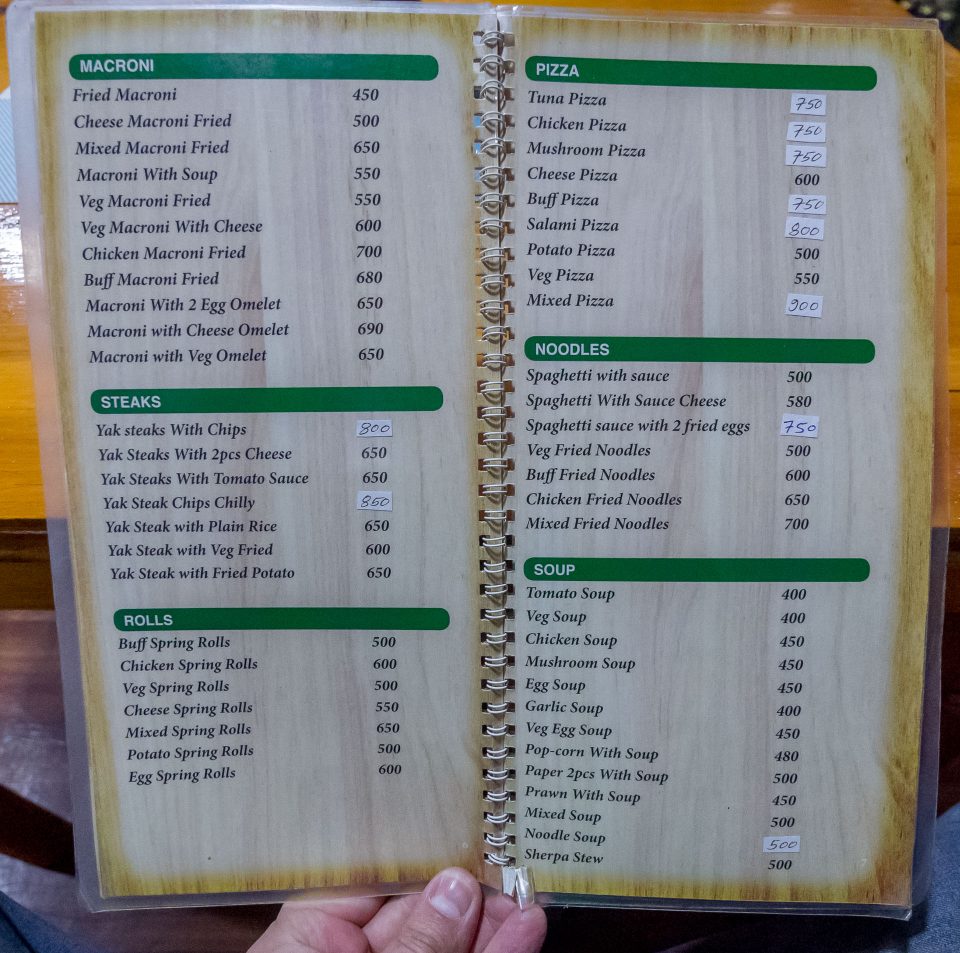 MACRONI
Fried Macroni 450
Cheese Macroni Fried 500
Mixed Macroni Fried 650
Macroni With Soup 550
Veg Macroni Fried 550
Veg Macroni With Cheese 600
Chicken Macroni Fried 700
Buff Macroni Fried 680
Macroni With 2 Egg Omelet 650
Macroni with Cheese Omelet 690
Macroni with Veg Omelet 650
STEAKS
Yak steaks With Chips 800
Yak Steaks With 2pcs Cheese 650
Yak Steaks With Tomato Sauce 650
Yak Steak Chips Chilly 850
Yak Steak with Plain Rice 650
Yak Steak with Veg Fried 600
Yak Steak with Fried Potato 650
ROLLS
Buff Spring Rolls 500
Chicken Spring Rolls 600
Veg Spring Rolls 500
Cheese Spring Rolls 550
Mixed Spring Rolls 650
Potato Spring Rolls 500
Egg Spring Rolls 600
PIZZA
Tuna Pizza 750
Chicken Pizza 750
Mushroom Pizza 750
Cheese Pizza 600
Buff Pizza 750
Salami Pizza 800
Potato Pizza 500
Veg Pizza 550
Mixed Pizza 900
NOODLES
Spaghetti with sauce 500
Spaghetti With Sauce Cheese 580
Spaghetti sauce with 2 fried eggs 750
Veg Fried Noodles 500
Buff Fried Noodles 600
Chicken Fried Noodles 650
Mixed Fried Noodles 700
SOUP
Tomato Soup 400
Veg Soup 400
Chicken Soup 450
Mushroom Soup 450
Egg Soup 450
Garlic Soup 400
Veg Egg Soup 450
Pop-corn With Soup 480
Paper 2pcs With Soup 500
Prawn With Soup 450
Mixed Soup 500
Noodle Soup 500
Sherpa Stew 500